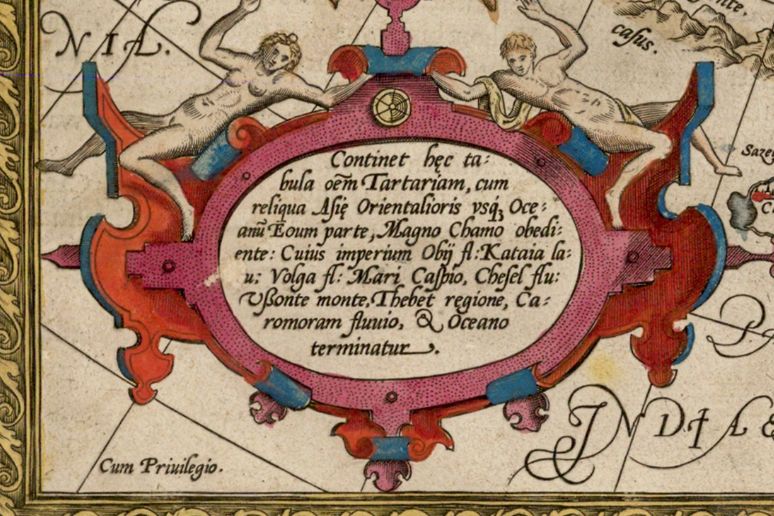 NIA.
casus.
Continet hęc ta:
bula oem̃ Tartariam, cum
reliqua Asię Orientalioris usq́ꝫ Oce:
anũ Eoum parte, Magno Chamo obedi:
ente: Cuius imperium Obij fl: Kataia la:
u: Volga fl: Mari Caspio, Chesel flu:
Ussonte monte, Thebet regione, Ca:
romoram fluuio, & Oceano
terminatur.
Cum Priuilegio.
INDIAE